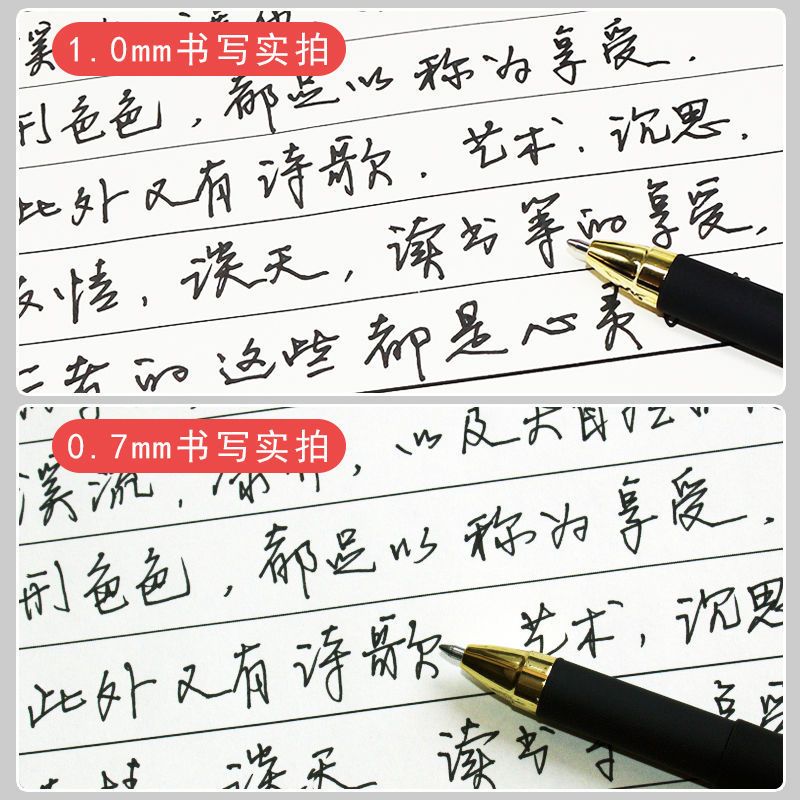 1.0mm书写实拍
形色色，都足以称为享受．
此外又有诗歌．艺术．沉思．
友情，谈天，读书等的享受，
后者的这些都是心灵
0.7mm书写实拍
溪流，以及大自
形色色，都足以称为享受．
此外又有诗歌 艺术，沉思
情 谈天 读书 享